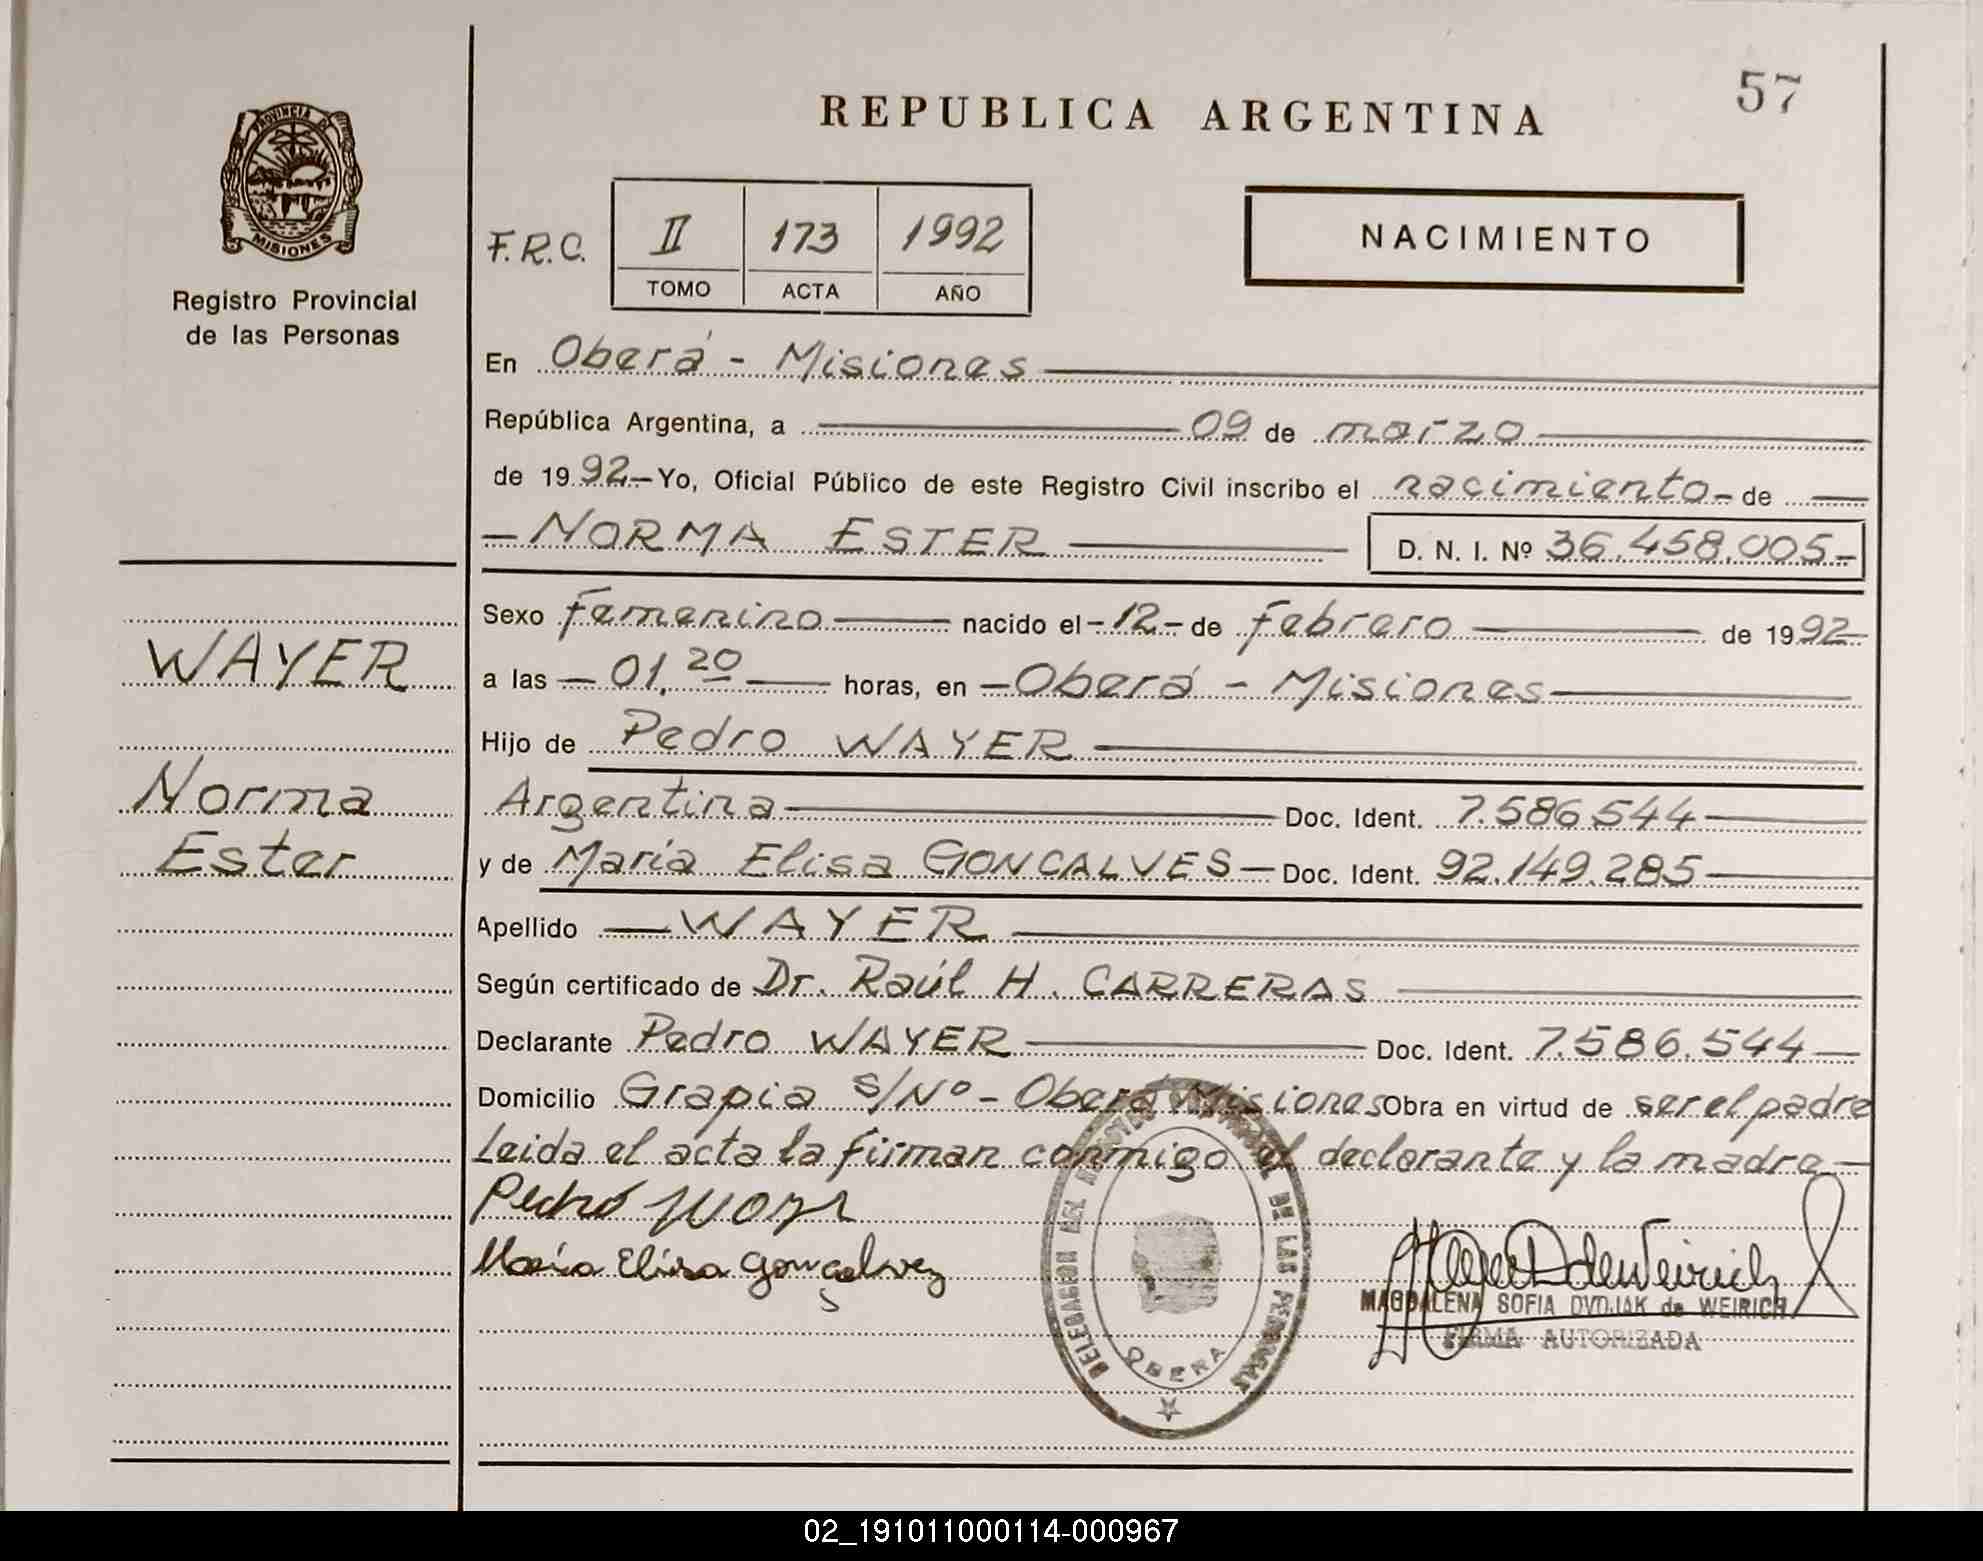 57
REPUBLICA ARGENTINA
PROVINCIA DE
MISIONES
Registro Provincial
de las Personas
F.R.C. II 173 1992
TOMO ACTA AÑO
NACIMIENTO
En Oberá - Misiones
República Argentina, a 09 de marzo
de 1992 - Yo, Oficial Público de este Registro Civil inscribo el nacimiento - de
- NORMA ESTER D. N. I. Nº 36.458.005-
Sexo femenino nacido el - 12 - de febrero de 1992
a las - 01,20 horas, en - Oberá - Misiones
Hijo de Pedro WAYER
Argentina Doc. Ident. 7.586.544
y de María Elisa GONCALVES - Doc. Ident. 92.149.285
Apellido - WAYER
Según certificado de Dr. Raúl H. CARRERAS
Declarante Pedro WAYER Doc. Ident. 7.586.544
Domicilio Grapia s/Nº - Oberá Misiones Obra en virtud de ser el padre
Leida el acta la firman conmigo el declarante y la madre -
Pedro
María Elisa Gonçalvez
WAYER
Norma
Ester
DELEGACION DEL REGISTRO PROVINCIAL DE LAS PERSONAS
OBERA
MAGDALENA SOFIA DVOJAK de WEIRICH
FIRMA AUTORIZADA
02_191011000114-000967